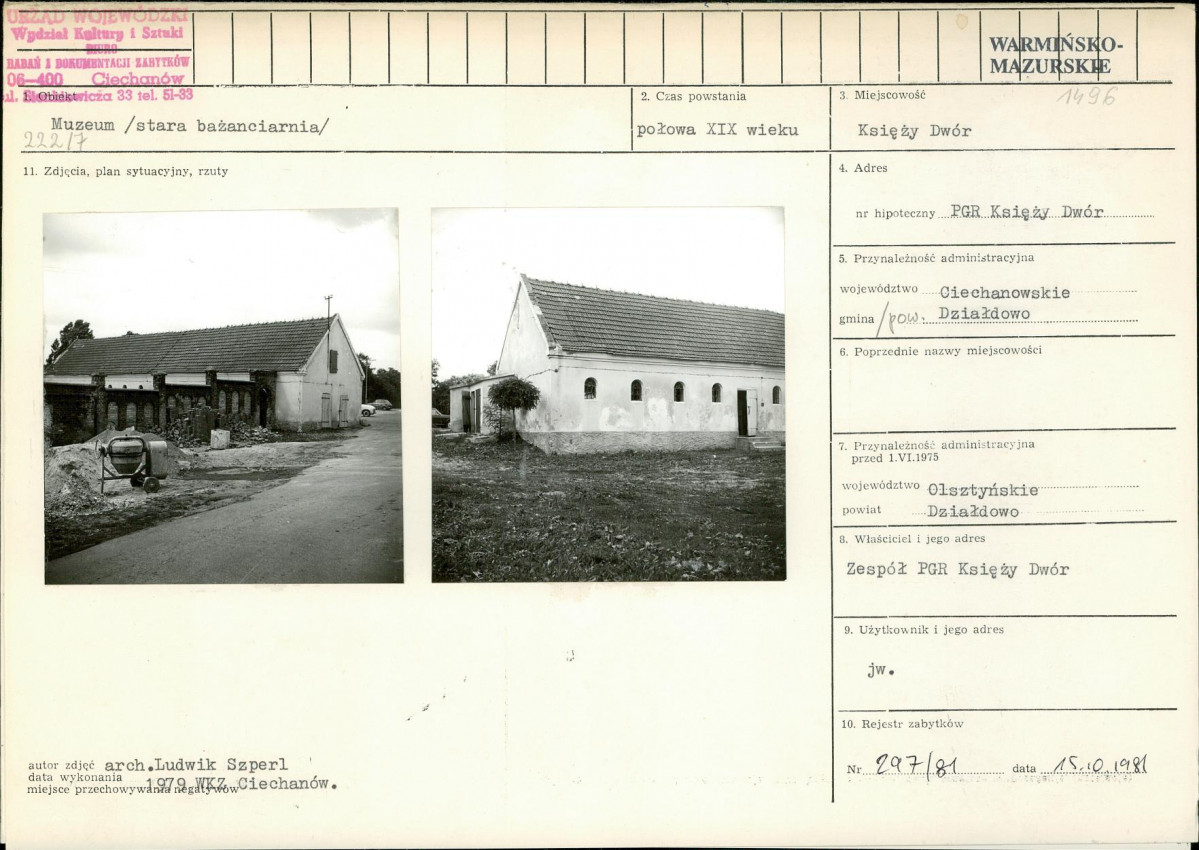 URZĄD WOJEWÓDZKI
Wydział Kultury i Sztuki
BIURO
BADAŃ I DOKUMENTACJI ZABYTKÓW
06-400 Ciechanów
33 tel. 51-33
WARMIŃSKO-
MAZURSKIE
1. Obiekt
Muzeum /stara bażanciarnia/
222/7
2. Czas powstania
połowa XIX wieku
3. Miejscowość
1496
Księży Dwór
11. Zdjęcia, plan sytuacyjny, rzuty
4. Adres
nr hipoteczny PGR Księży Dwór
5. Przynależność administracyjna
województwo Ciechanowskie
gmina /pow. Działdowo
6. Poprzednie nazwy miejscowości
7. Przynależność administracyjna
przed 1.VI.1975
województwo Olsztyńskie
powiat Działdowo
8. Właściciel i jego adres
Zespół PGR Księży Dwór
9. Użytkownik i jego adres
jw.
10. Rejestr zabytków
Nr 297/81 data 15.10.1981
autor zdjęć arch.Ludwik Szperl
data wykonania 1979 WKZ Ciechanów.
miejsce przechowywania negatywów